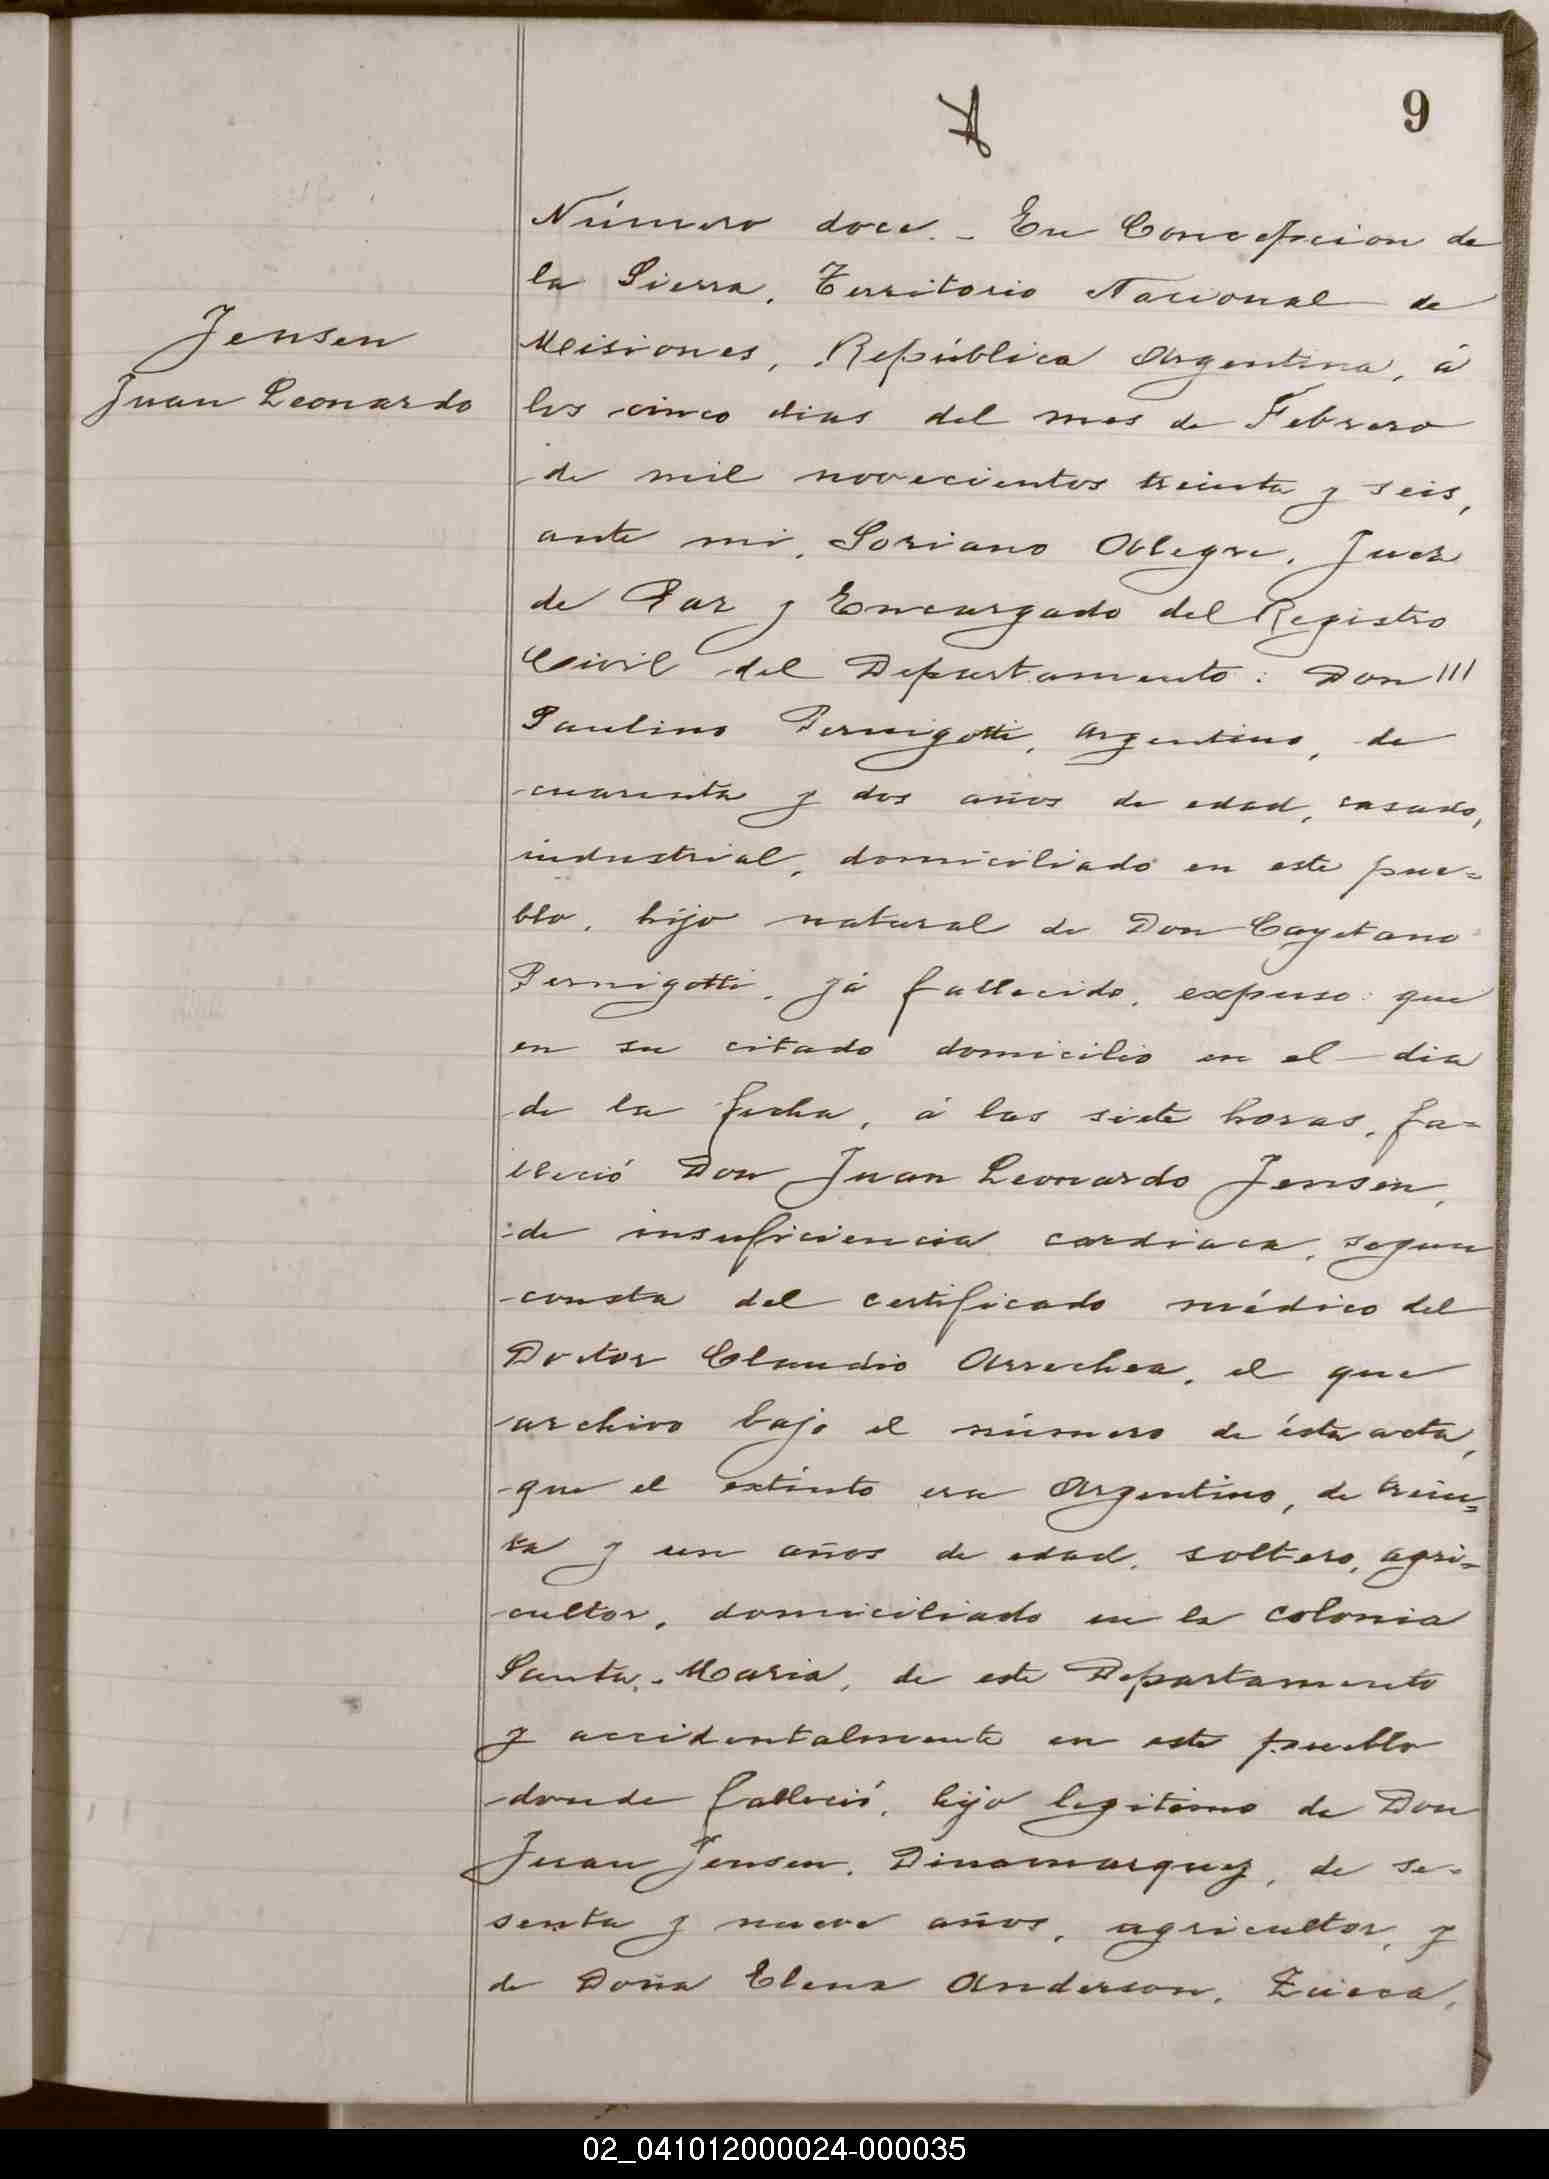 9
Jensen
Juan Leonardo
Número doce. - En Concepcion de
la Sierra, Territorio Nacional de
Misiones, República Argentina, á
los cinco dias del mes de Febrero
de mil novecientos treinta y seis,
ante mi, Soriano Alegre, Juez
de Paz y Encargado del Registro
Civil del Departamento: Don
Paulino Pernigotti, argentino, de
cuarenta y dos años de edad, casado,
industrial, domiciliado en este pue=
blo, hijo natural de Don Cayetano
Pernigotti, yá fallecido, expuso: que
en su citado domicilio en el dia
de la fecha, á las siete horas, fa=
lleció Don Juan Leonardo Jensen,
de insuficiencia cardiaca, segun
consta del certificado médico del
Doctor Claudio Arrechea, el que
archivo bajo el número de ésta acta,
que el extinto era Argentino, de trein=
ta y un años de edad, soltero, agri=
cultor, domiciliado en la colonia
Santa Maria, de este Departamento
y accidentalmente en este pueblo
donde falleció, hijo legitimo de Don
Juan Jensen, Dinamarquez, de se=
senta y nueve años, agricultor, y
de Doña Elena Anderson, Zueca,
02_041012000024-000035